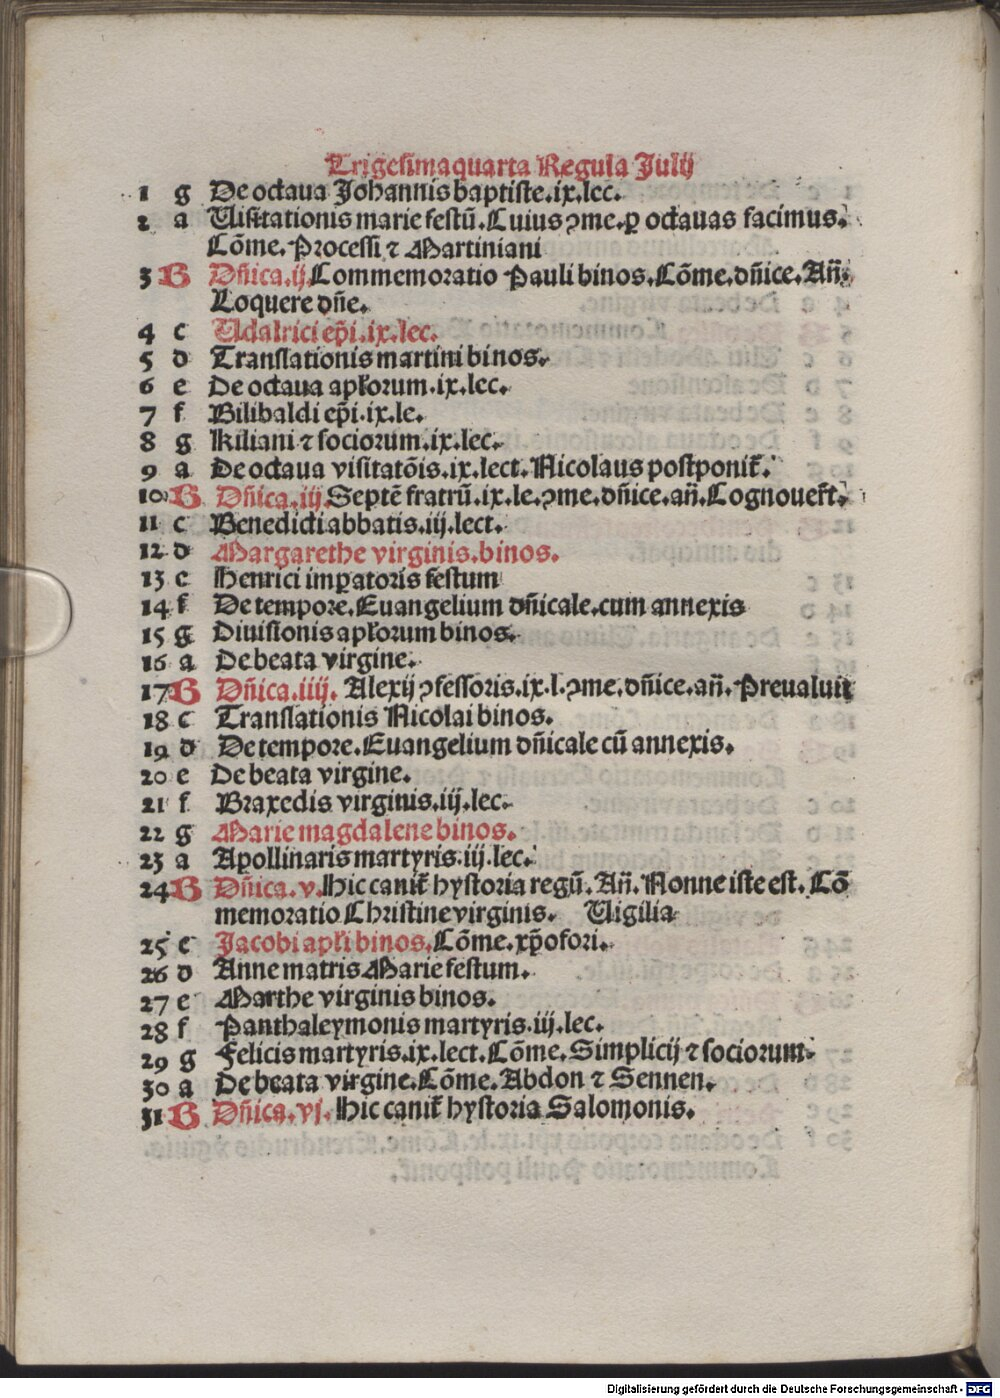 Trigesimaquarta Regula Julij
1 g De octaua Johannis baptiste.ix.lec.
2 a Uisitationis marie festū.Cuius ꝯme.ꝑ octauas facimus.
Cōme.Processi ⁊ Martiniani
3 B Dñica.ij.Commemoratio Pauli binos.Cōme.dñice.Añ.
Loquere dñe.
4 c Udalrici ep̄i.ix.lec.
5 d Translationis martini binos.
6 e De octaua apl̄orum.ix.lec.
7 f Bilibaldi ep̄i.ix.le.
8 g Kiliani ⁊ sociorum.ix.lec.
9 a De octaua visitatōis.ix.lect.Nicolaus postponit̄.
10 B Dñica.iij.Septē fratrū.ix.le.ꝯme.dñice.añ.Cognouer̄t.
11 c Benedicti abbatis.iij.lect.
12 d Margarethe virginis.binos.
13 e Henrici imꝑatoris festum
14 f De tempore.Euangelium dñicale.cum annexis
15 g Diuisionis apl̄orum binos.
16 a De beata virgine.
17 B Dñica.iiij. Alexij ꝯfessoris.ix.l.ꝯme.dñice.añ.Preualuit
18 c Translationis Nicolai binos.
19 d De tempore.Euangelium dñicale cū annexis.
20 e De beata virgine.
21 f Braxedis virginis.iij.lec.
22 g Marie magdalene binos.
23 a Apollinaris martyris.iij.lec.
24 B Dñica.v.Hic canit̄ hystoria regū.Añ.Nonne iste est.Cō
memoratio Christine virginis. Uigilia
25 c Jacobi apl̄i binos.Cōme.xp̄ofori.
26 d Anne matris Marie festum.
27 e Marthe virginis binos.
28 f Panthaleymonis martyris.iij.lec.
29 g Felicis martyris.ix.lect.Cōme.Simplicij ⁊ sociorum.
30 a De beata virgine.Cōme.Abdon ⁊ Sennen.
31 B Dñica.vj.Hic canit̄ hystoria Salomonis.
Digitalisierung gefördert durch die Deutsche Forschungsgemeinschaft - DFG